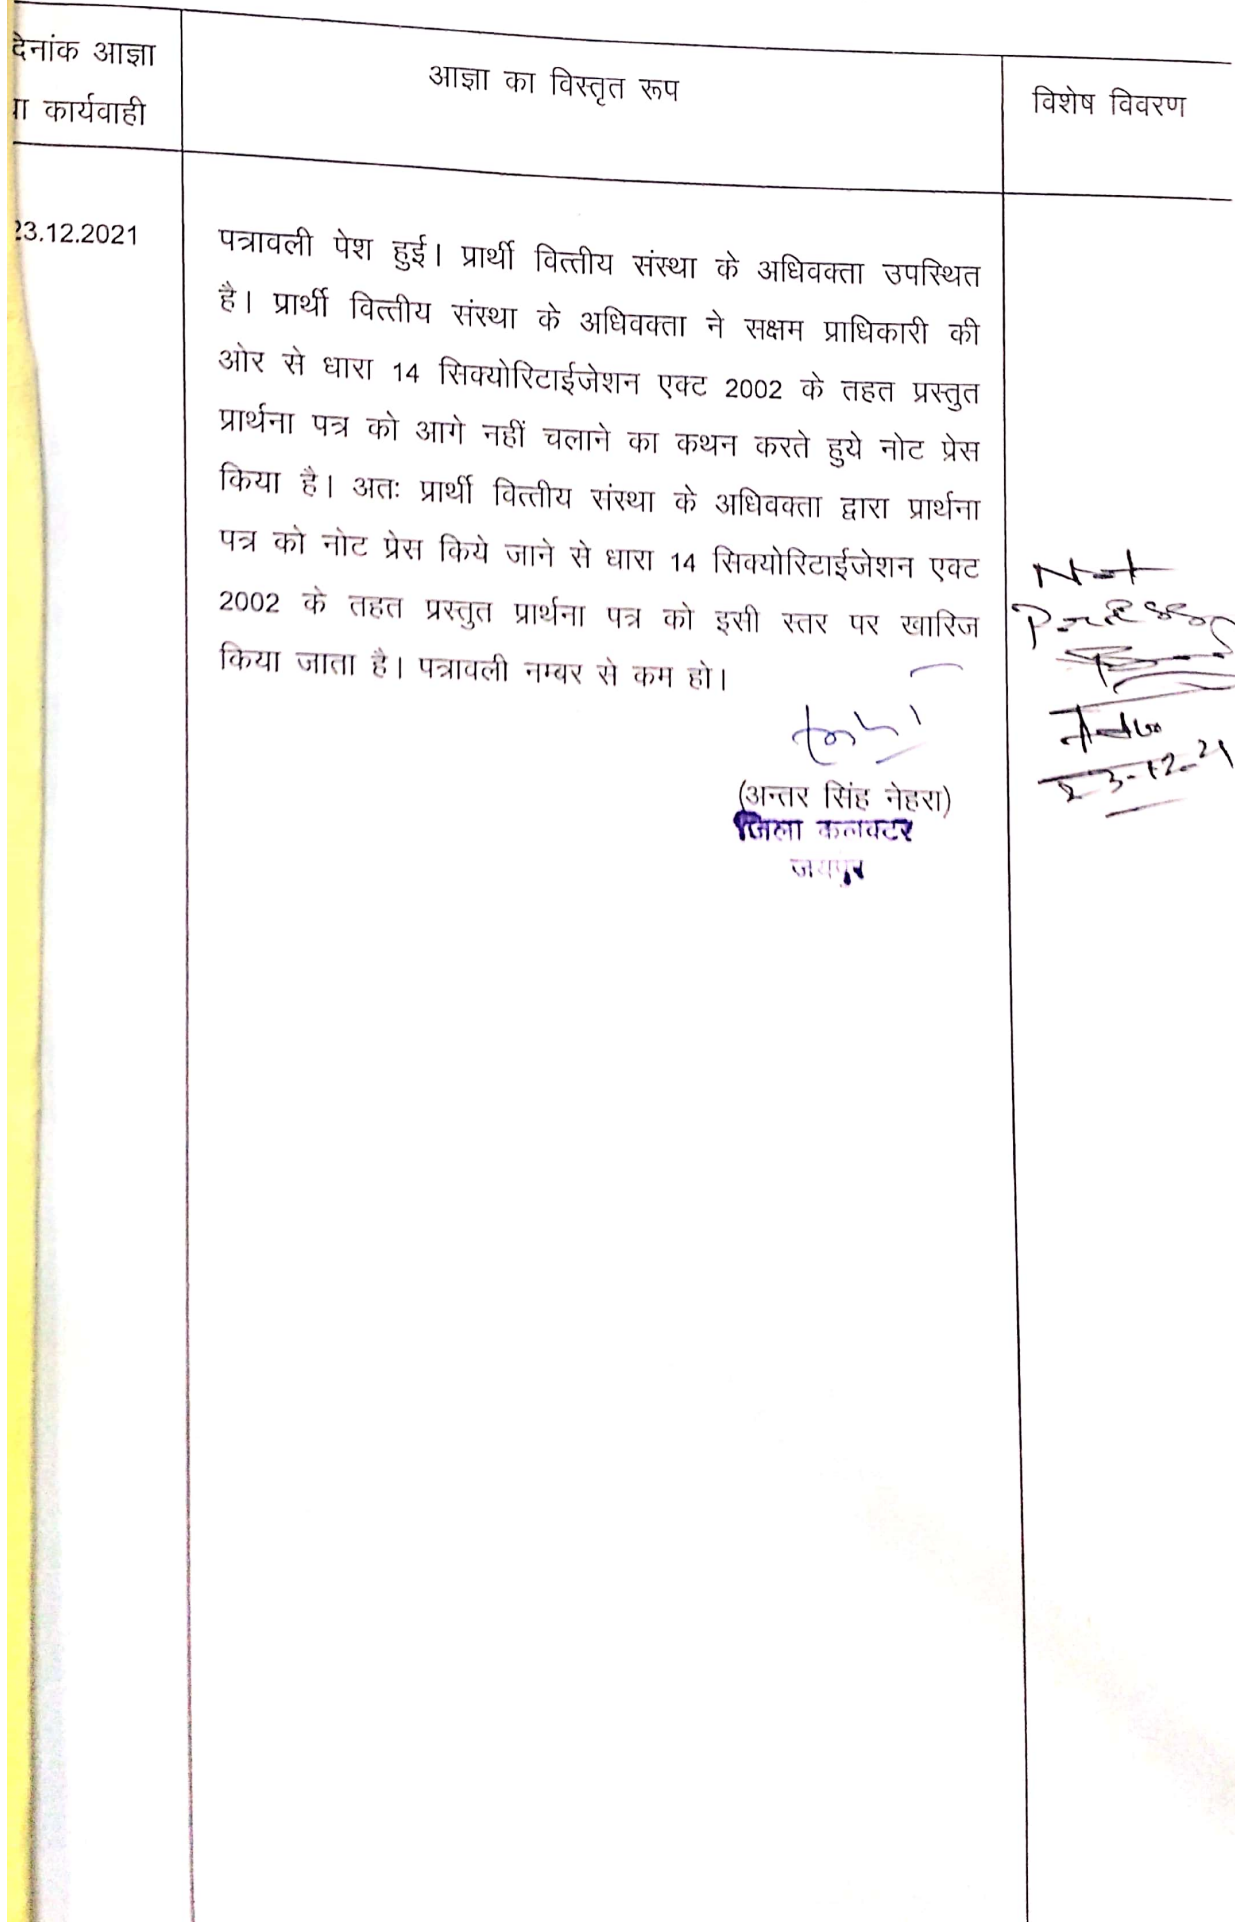 देनांक आज्ञा
ा कार्यवाही
आज्ञा का विस्तृत रूप
विशेष विवरण
23.12.2021
पत्रावली पेश हुई। प्रार्थी वित्तीय संस्था के अधिवक्ता उपस्थित
है। प्रार्थी वित्तीय संस्था के अधिवक्ता ने सक्षम प्राधिकारी की
ओर से धारा 14 सिक्योरिटाईजेशन एक्ट 2002 के तहत प्रस्तुत
प्रार्थना पत्र को आगे नहीं चलाने का कथन करते हुये नोट प्रेस
किया है। अतः प्रार्थी वित्तीय संस्था के अधिवक्ता द्वारा प्रार्थना
पत्र को नोट प्रेस किये जाने से धारा 14 सिक्योरिटाईजेशन एक्ट
2002 के तहत प्रस्तुत प्रार्थना पत्र को इसी स्तर पर खारिज
किया जाता है। पत्रावली नम्बर से कम हो।
(अन्तर सिंह नेहरा)
जिला कलक्टर
जयपुर
Not
Press
23-12-21